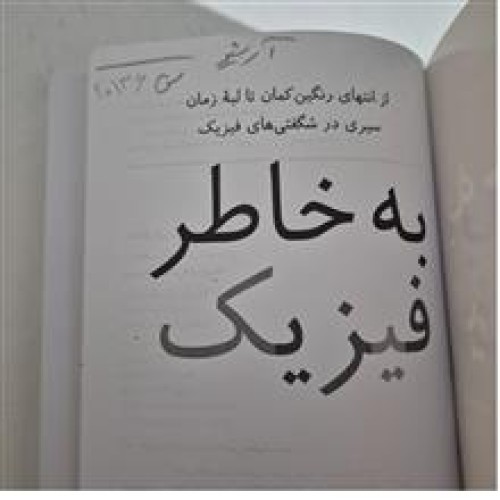 آرشیو
از انتهای رنگین‌کمان تا لبهٔ زمان
سیری در شگفتی‌های فیزیک
به خاطر
فیزیک